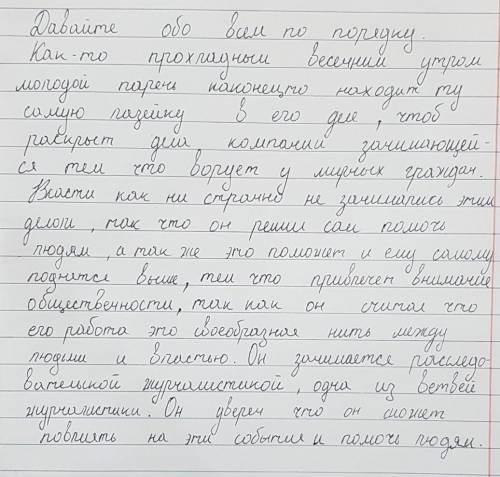 Давайте обо всем по порядку.
Как-то прохладным весенним утром
молодой парень наконецто находит ту
самую лазейку в его деле, чтоб
раскрыт дела компании занимающей-
ся тем что ворует у мирных граждан.
Власти как ни странно не занимались этим
делом, так что он решил сам помочь
людям, а так же это поможет и ему самому
поднятся выше, тем что привлечет внимание
общественности, так как он считал что
его работа это своеобразная нить между
людьми и властью. Он занимается расследо-
вательской журналистикой, одна из ветвей
журналистики. Он уверен что он сможет
повлиять на эти события и помочь людям.